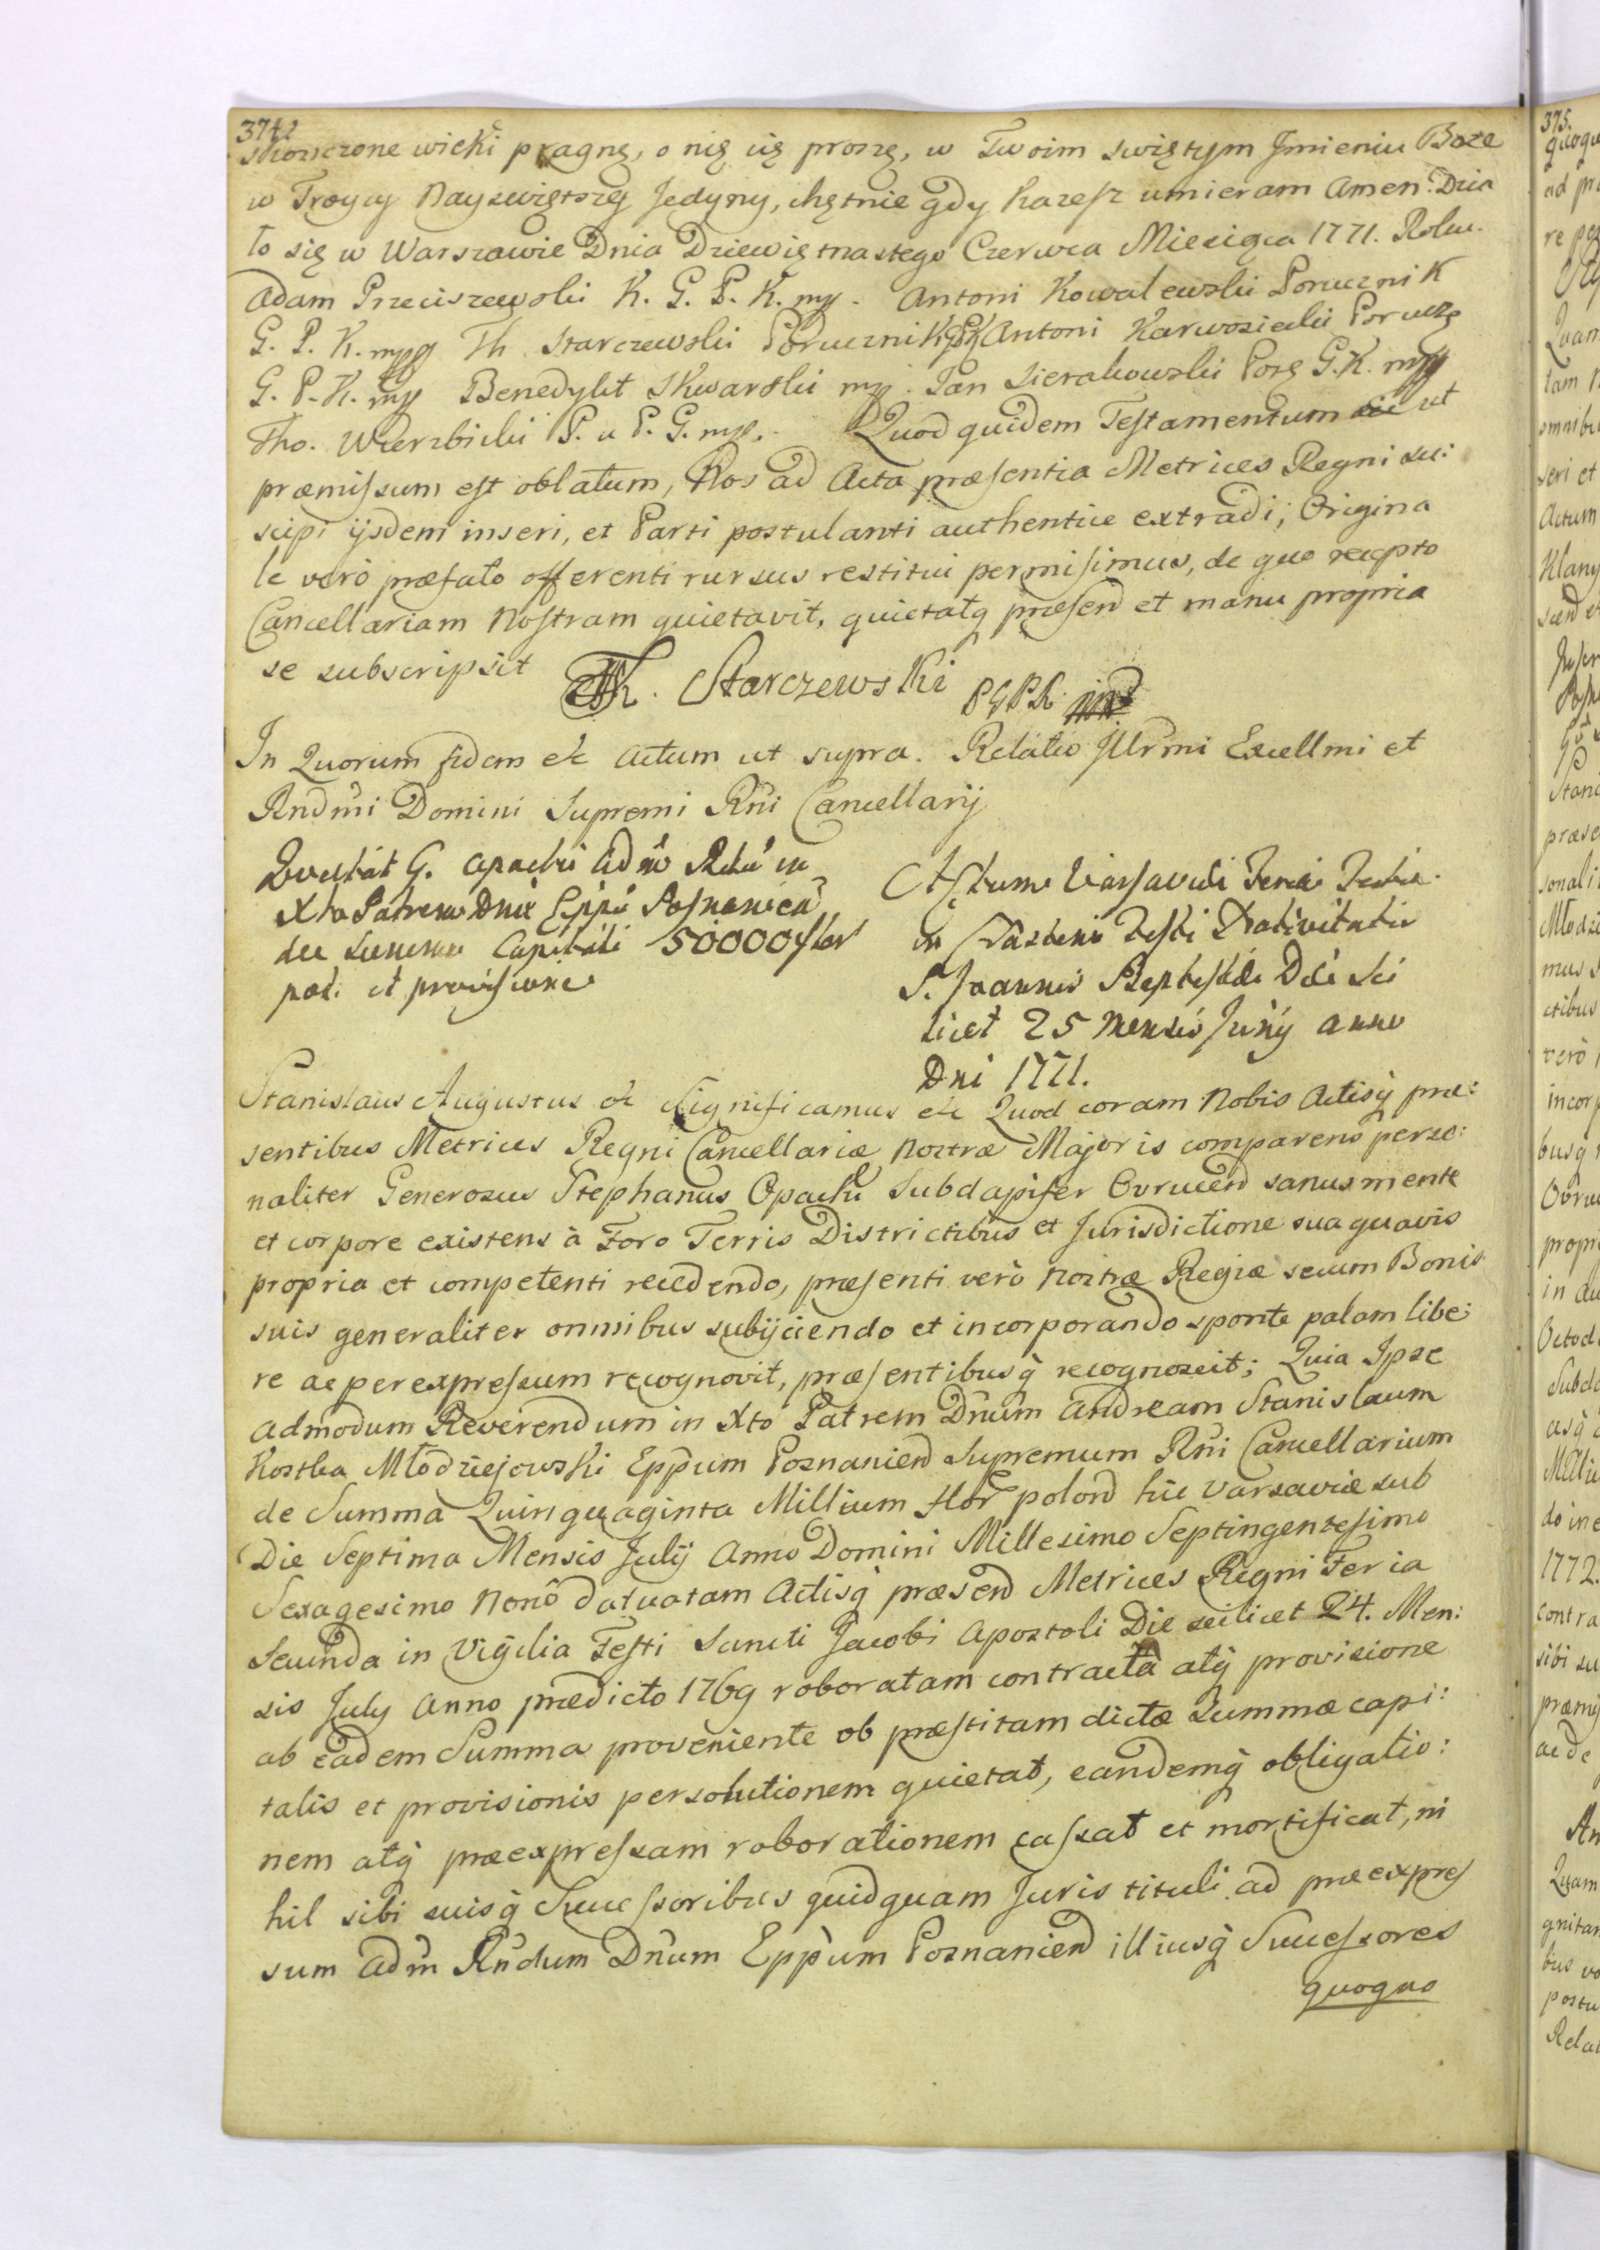 374
skończone wieki pragnę, o nię cię proszę, w Twoim swiętym Jmieniu Boże
w Troycy Nayswiętszey Jedyny, chętnie gdy każesz umieram Amen. Dzia
ło się w Warszawie Dnia Dziewiętnastego Czerwca Miesiąca 1771. Roku.
Adam Przeciszewski K. G. P. K. mp. Antoni Kowalewski Porucznik
G. P. K. mpp Th. Starczewski Porucznik GPK Antoni Karwosiecki Porucz
G. P. K. mp Benedykt Skwarski mp. Jan Sierakowski Porg G. K. mpp
Tho. Wierzbicki P. u P. G. mp. Quod quidem Testamentum ut
præmissum est oblatum, Nos ad Acta præsentia Metrices Regni sus:
scipi ijsdem inseri, et Parti postulanti authentice extradi; Origina
le verò præfato offerenti rursus restitui permisimus, de quo recepto
Cancellariam Nostram quietavit, quietatq præsend et manu propria
se subscripsit Th. Starczewski PGPK mp
In Quorum fidem etc Actum ut supra. Relatio Jllrmi Excellmi et
Rndmi Domini Supremi Rni Cancellarij
Quietat G. Opacki Adm Rndu in
Xto Patrem Dnu Eppu Posnaniēn
de Summa Capitali 50000 flor
pol. et provisione
Actum Varsaviæ Feria Tertia
in Crastino Festi Nativitatis
S. Joannis Baptistæ Die sci
licet 25 Mensis Junij anno
Dni 1771.
Stanislaus Augustus etc Significamus etc Quod coram Nobis Actisq præ:
sentibus Metrices Regni Cancellariæ Nostræ Majoris comparens perso:
naliter Generosus Stephanus Opacki Subdapifer Ovrucend sanus mente
et corpore existens à Foro Terris Districtibus et Jurisdictione sua quavis
propria et competenti recedendo, præsenti verò Nostræ Regiæ secum Bonis
suis generaliter omnibus subijciendo et incorporando sponte palam libe:
re ac per expressum recognovit, præsentibusq recognoscit; Quia Ipse
Admodum Reverendum in Xto Patrem Dnum Andream Stanislaum
Kostka Młodziejowski Eppum Posnaniend Supremum Rni Cancellarium
de Summa Quinquaginta Millium flor polond hic Varsaviæ sub
Die Septima Mensis Julij Anno Domini Millesimo Septingentesimo
Sexagesimo Nono datuatam Actisq præsend Metrices Regni Feria
Secunda in Vigilia Festi Sancti Jacobi Apostoli Die scilicet 24. Men:
sis July Anno prædicto 1769 roboratam contracta atq provisione
ab eadem Summa proveniente ob præstitam dictæ Summæ capi:
talis et provisionis persolutionem quietat, eandemq obligatio:
nem atq præexpressam roborationem cassat et mortificat, ni
hil sibi suisq Successoribus quidquam Juris tituli ad præexpres
sum Adm Rndum Dnum Eppum Posnaniend illiusq Successores
quoquo